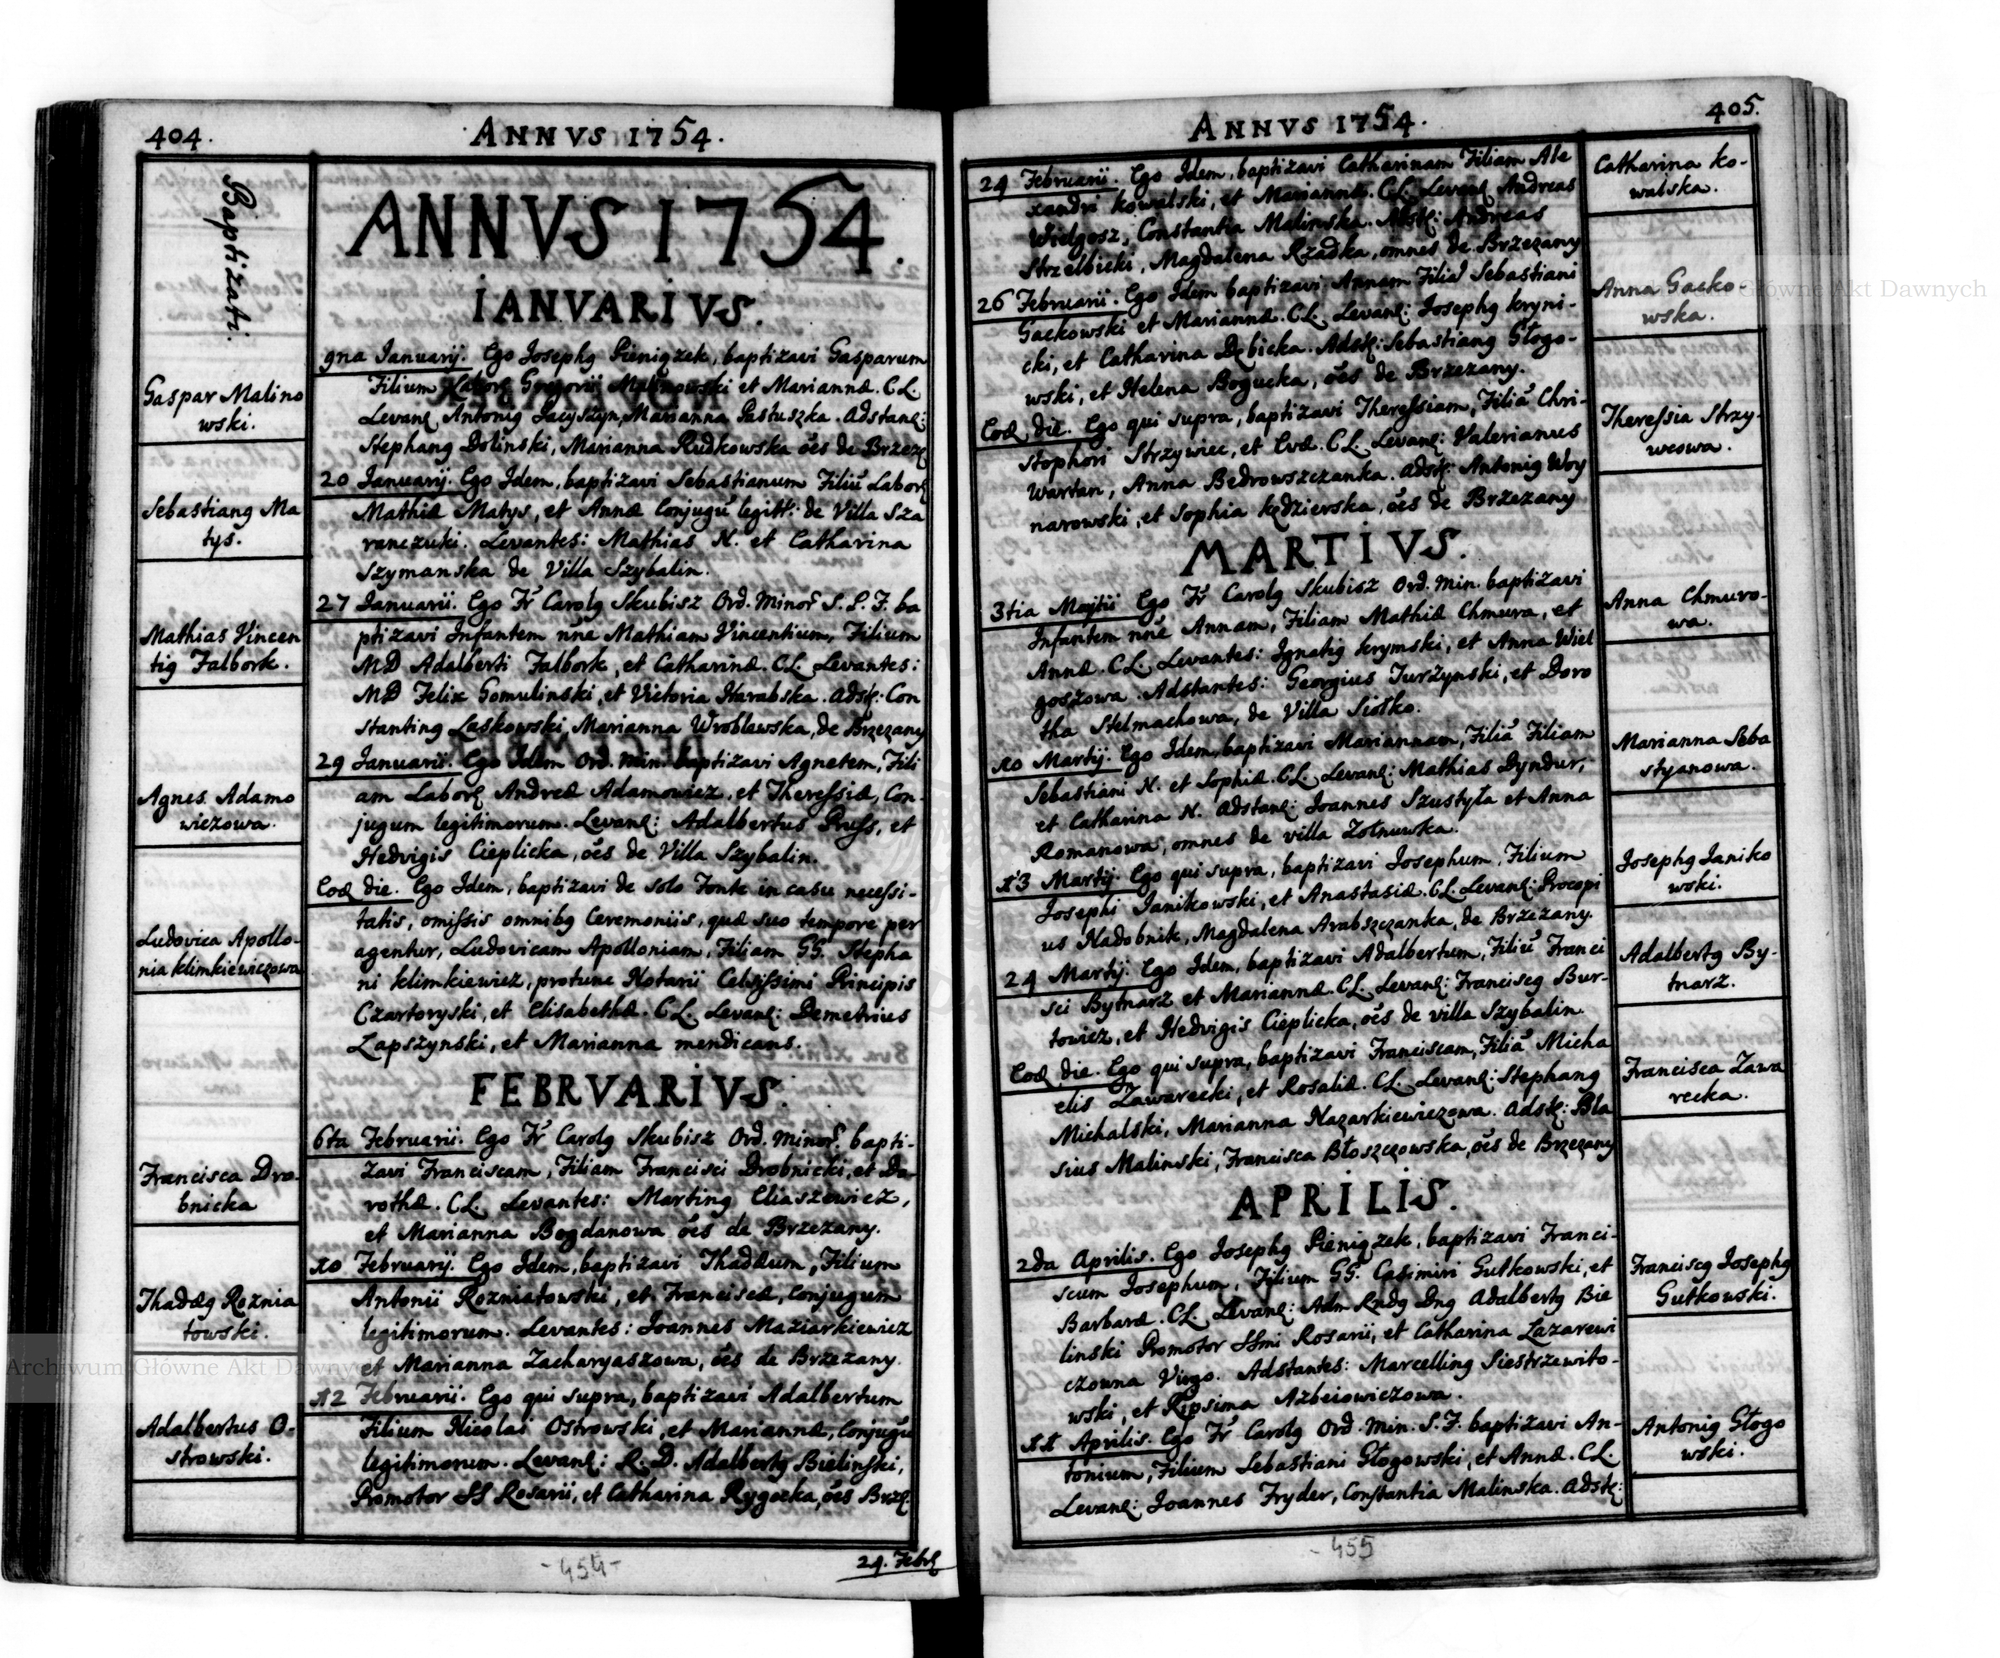 404.
ANNVS 1754.
Baptizati.
ANNVS 1754.
IANVARIVS.
Gaspar Malino
wski.
9na Ianuarij. Ego Josephg Pieniązek, baptizavi Gasparum
Filium Labor Gregorii Malinowski et Mariannæ. C.L.
Levan Antonig Jacyszyn, Marianna Pastuszka. Adstan:
Stephang Dolinski, Marianna Rudkowska oēs de Brzez
Sebastiang Ma
tys.
20 Ianuarij. Ego Idem, baptizavi Sebastianum Filiū Labor
Mathiæ Matys, et Annæ Conjugū legitt: de Villa Sza
ranczuki. Levantes: Mathias N. et Catharina
Szymanska de Villa Szybalin.
Mathias Vincen
tig Falbork.
27 Ianuarii. Ego Fr Carolg Skubisz Ord. Minor S. P. F. ba
ptizavi Infantem nne Mathiam Vincentium, Filium
MD Adalberti Falbork, et Catharinæ. CL. Levantes:
MD Felix Gomulinski, et Victoria Harabska. Adst: Con
stanting Laskowski, Marianna Wroblewska, de Brzezany
Agnes. Adamo
wiczowa.
29 Ianuarii. Ego Idem Ord. Min. baptizavi Agnetem, Fili
am Labor Andreæ Adamowicz, et Theressiæ, Con-
jugum legitimorum. Levan: Adalbertus Pruss, et
Hedvigis Cieplicka, oēs de Villa Szybalin.
Ludovica Apollo-
nia Klimkiewiczowa
Eod die. Ego Idem, baptizavi de solo Fonte in casu necessi-
tatis, omissis omnibg Ceremoniis, quæ suo tempore per
agentur, Ludovicam Apolloniam, Filiam GG. Stepha
ni Klimkiewicz, protunc Notarii Celsissimi Principis
Czartoryski, et Elisabethæ. CL. Levan: Demetrius
Lapszynski, et Marianna mendicans.
FEBRVARIVS.
Francisca Dro-
bnicka
6ta Februarii. Ego Fr Carolg Skubisz Ord. Minor, bapti-
zavi Franciscam, Filiam Francisci Drobnicki, et Do-
rothæ. CL. Levantes: Marting Eliaszewicz,
et Marianna Bogdanowa oēs de Brzezany.
Thadæg Roznia
towski.
10 Februarij. Ego Idem, baptizavi Thadæum, Filium
Antonii Rozniatowski, et Franciscæ, Conjugum
legitimorum. Levantes: Joannes Maziarkiewicz
et Marianna Zacharyaszowa, oēs de Brzezany.
Adalbertus O-
strowski.
12 Februarii. Ego qui supra, baptizavi Adalbertum
Filium Nicolai Ostrowski, et Mariannæ, Conjugū
legitimorum. Levan: R. D. Adalbertg Bielinski,
Promotor SS Rosarii, et Catharina Rygocka, oēs Brz:
-454-
24. Febr
405.
ANNVS 1754.
Catharina Ko-
walska.
24 Februarii. Ego Idem, baptizavi Catharinam Filiam Ale
xandri Kowalski, et Mariannæ. CL. Levan Andreas
Wielgosz, Constantia Malinska. Adst: Andreas
Strzelbicki, Magdalena Rzadka, omnes de Brzezany
Anna Gacko-
wska.
26 Februarii. Ego Idem baptizavi Annam Filiā Sebastiani
Gackowski et Mariannæ. CL. Levan: Josephg Kryni-
cki, et Catharina Dębicka. Adst: Sebastiang Głogo-
wski, et Helena Bogucka, oēs de Brzezany.
Theressia Strzy-
wcowa.
Eod die. Ego qui supra, baptizavi Theressiam, Filiā Chri-
stophori Strzywiec, et Evæ. C.L. Levan: Valerianus
Wartan, Anna Bedrowszczanka. Adst: Antonig Woy
narowski, et Sophia Kędzierska, oēs de Brzezany
MARTIVS.
Anna Chmuro-
wa.
3tia Martii Ego Fr Carolg Skubisz Ord. Min. baptizavi
Infantem nne Annam, Filiam Mathiæ Chmura, et
Annæ. C.L. Levantes: Ignatig Krymski, et Anna Wiel
goszowa. Adstantes: Georgius Jurzynski, et Doro
tha Stelmachowa, de Villa Siołko.
Marianna Seba
styanowa.
10 Martij. Ego Idem, baptizavi Mariannam, Filiā Filiam
Sebastiani N. et Sophiæ CL. Levan: Mathias Dyndur,
et Catharina N. Adstan: Joannes Szustyła et Anna
Romanowa, omnes de villa Zolnuwka.
Josephg Janiko
wski.
13 Martij. Ego qui supra, baptizavi Josephum, Filium
Josephi Janikowski, et Anastasiæ. CL. Levan: Procopi
us Nadobnik, Magdalena Arabszczanka, de Brzezany.
Adalbertg By-
tnarz.
24 Martij. Ego Idem, baptizavi Adalbertum, Filiū Franci
sci Bytnarz et Mariannæ. CL. Levan: Franciscg Bur-
towicz, et Hedvigis Cieplicka, oēs de villa Szybalin.
Francisca Zawa
recka.
Eod die. Ego qui supra, baptizavi Franciscam, Filiā Micha
elis Zawarecki, et Rosaliæ. CL. Levan: Stephang
Michalski, Marianna Nazarkiewiczowa. Adst: Bla
sius Malinski, Francisca Błoszczowska, oēs de Brzezany
APRILIS.
Franciscg Josephg
Gutkowski.
2da Aprilis. Ego Josephg Pieniązek, baptizavi Franci-
scum Josephum, Filium GG. Casimiri Gutkowski, et
Barbaræ. CL. Levan: Adm Rndg Dng Adalbertg Bie
linski Promotor SSmi Rosarii, et Catharina Lazarewi
czowna Virgo. Adstantes: Marcelling Siestrzewito-
wski, et Ripsima Azbeiowiczowa.
Antonig Głogo
wski.
11 Aprilis. Ego Fr Carolg Ord. Min. S. F. baptizavi An-
tonium, Filium Sebastiani Głogowski, et Annæ. CL.
Levan: Joannes Fryder, Constantia Malinska. Adst:
- 455
Archiwum Główne Akt Dawnych